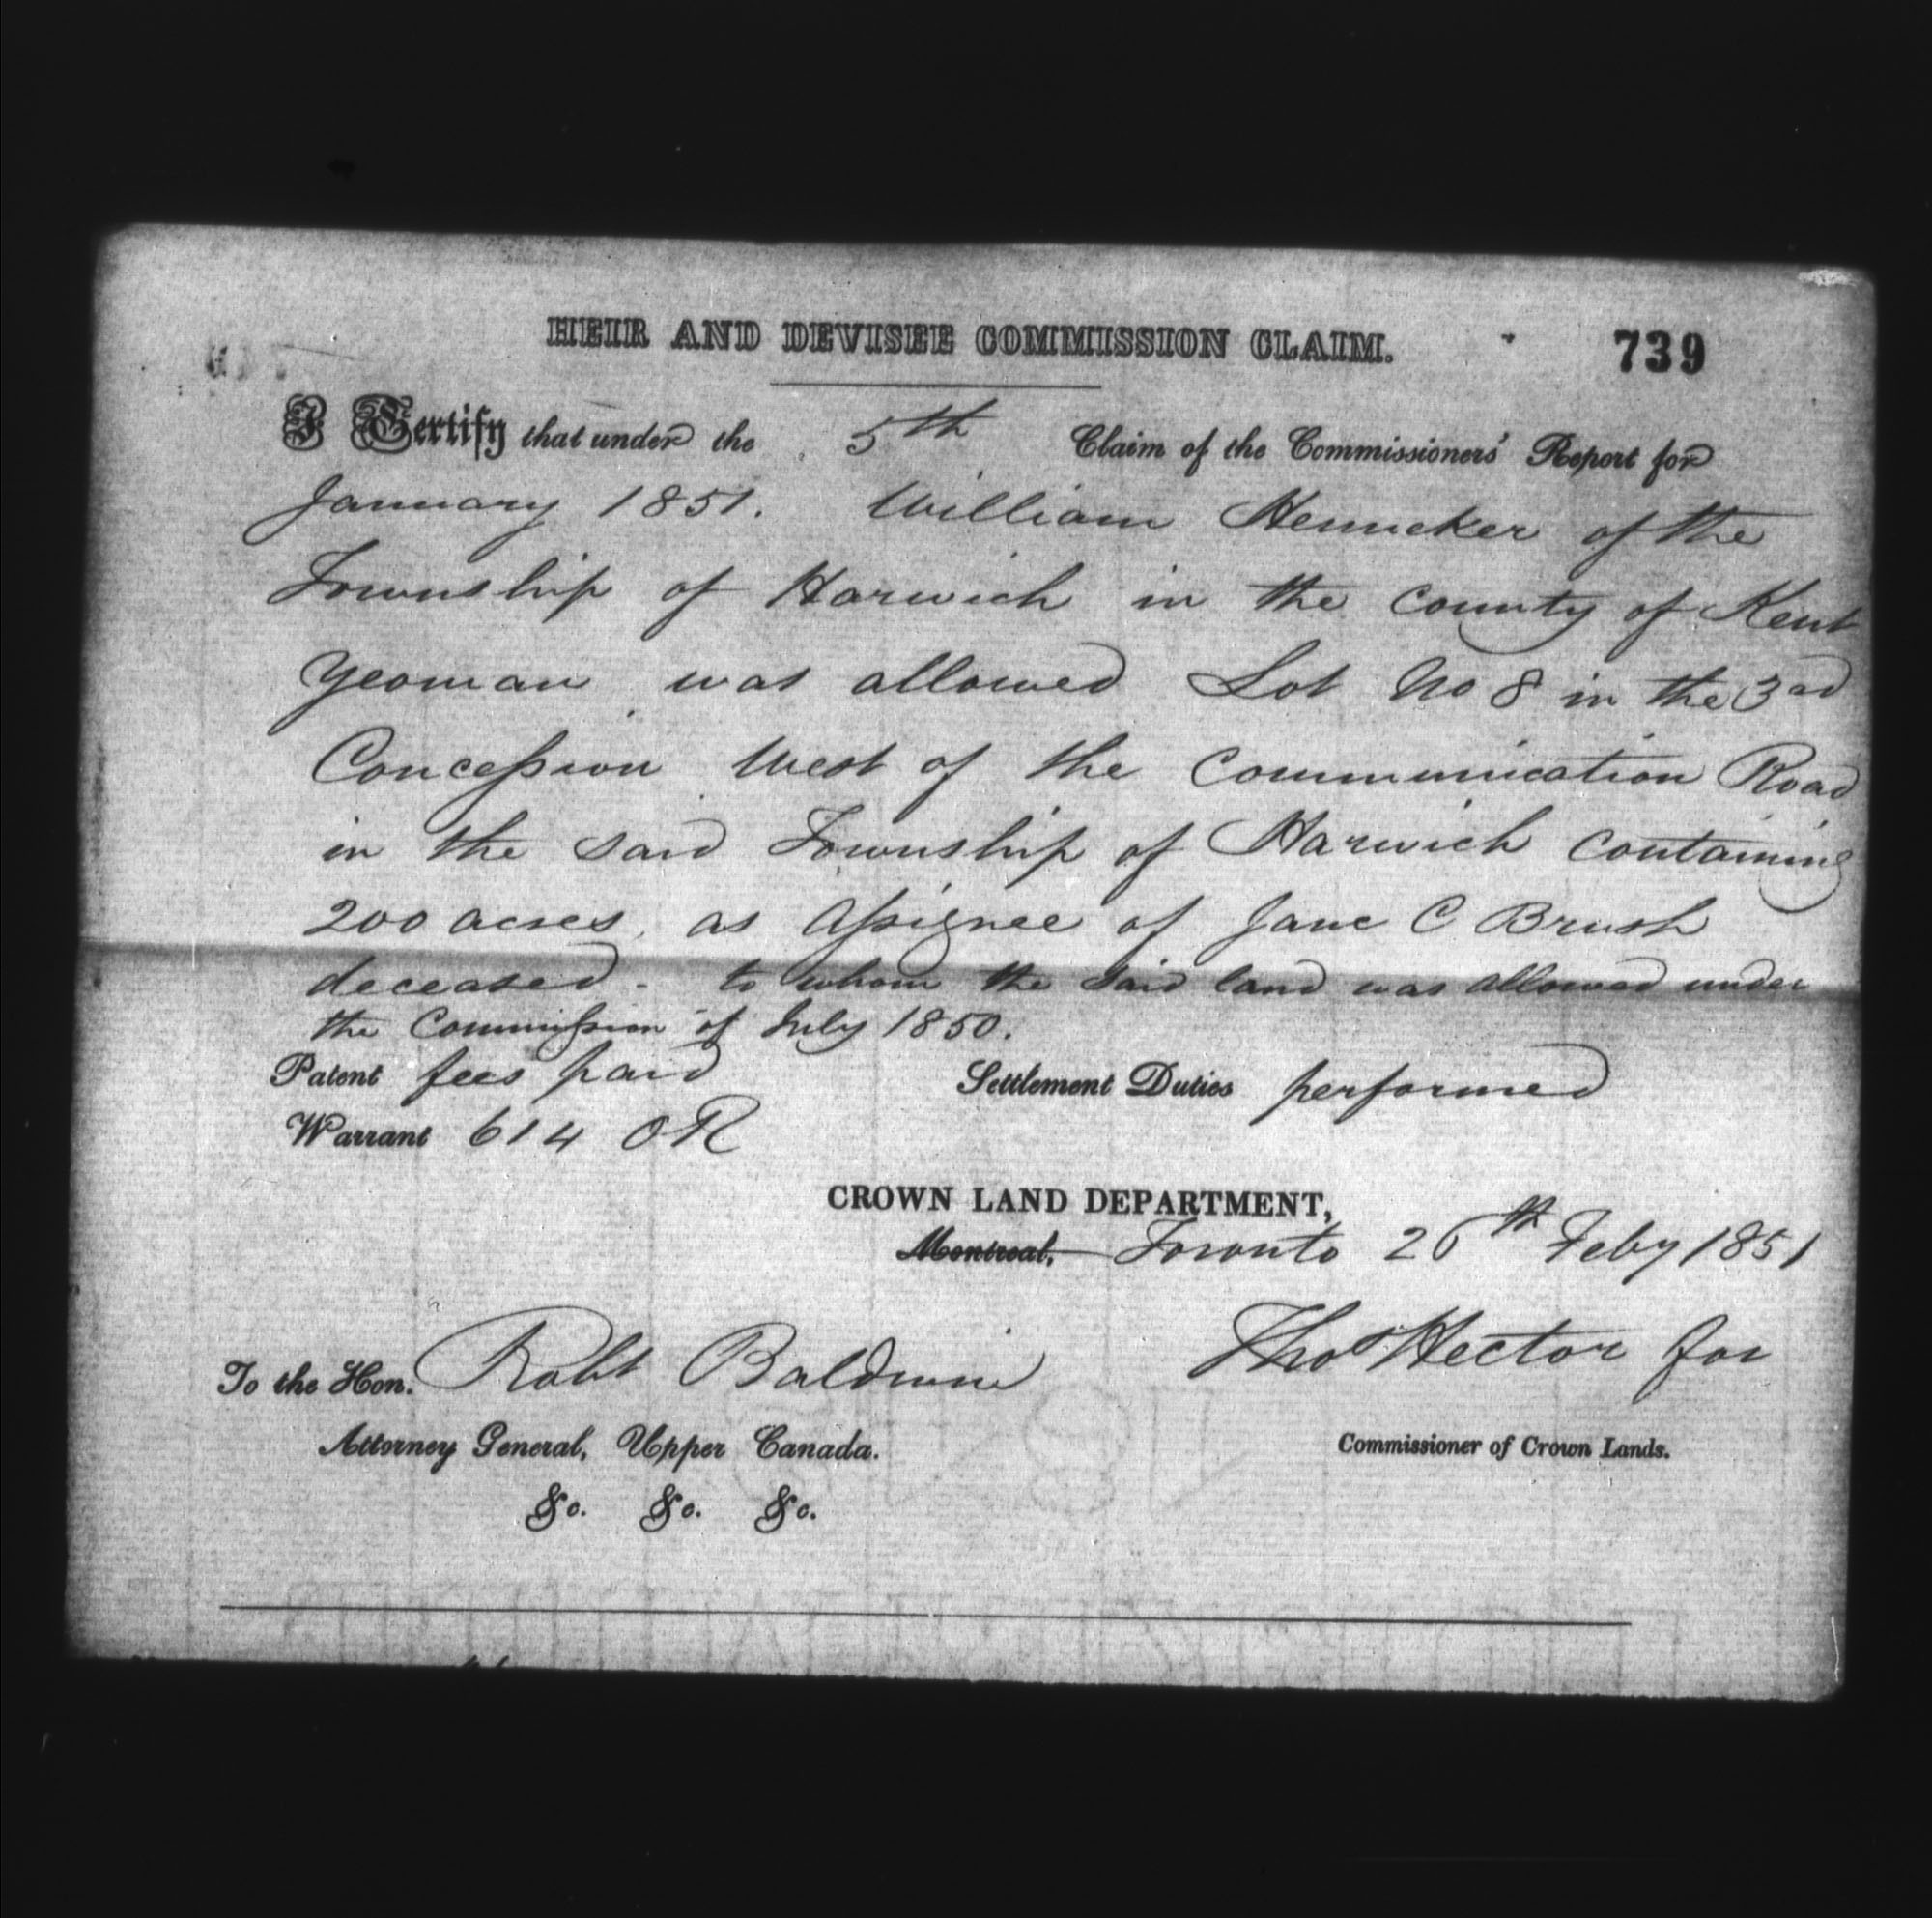 HEIR AND DEVISEE COMMISSION CLAIM. 739
I Certify that under the 5th Claim of the Commissioners' Report for
January 1851. William Henneker of the
Township of Harwich in the County of Kent
Yeoman was allowed Lot No 8 in the 3rd
Concession West of the Communication Road
in the said Township of Harwich containing
200 acres, as Assignee of Jane C Brush
deceased - to whom the said land was allowed under
the Commission of July 1850.
Patent fees paid Settlement Duties performed
Warrant 614 OR
CROWN LAND DEPARTMENT,
Montreal, Toronto 26th Feby 1851
To the Hon. Robt Baldwin Thos Hector for
Attorney General, Upper Canada. Commissioner of Crown Lands.
&c. &c. &c.